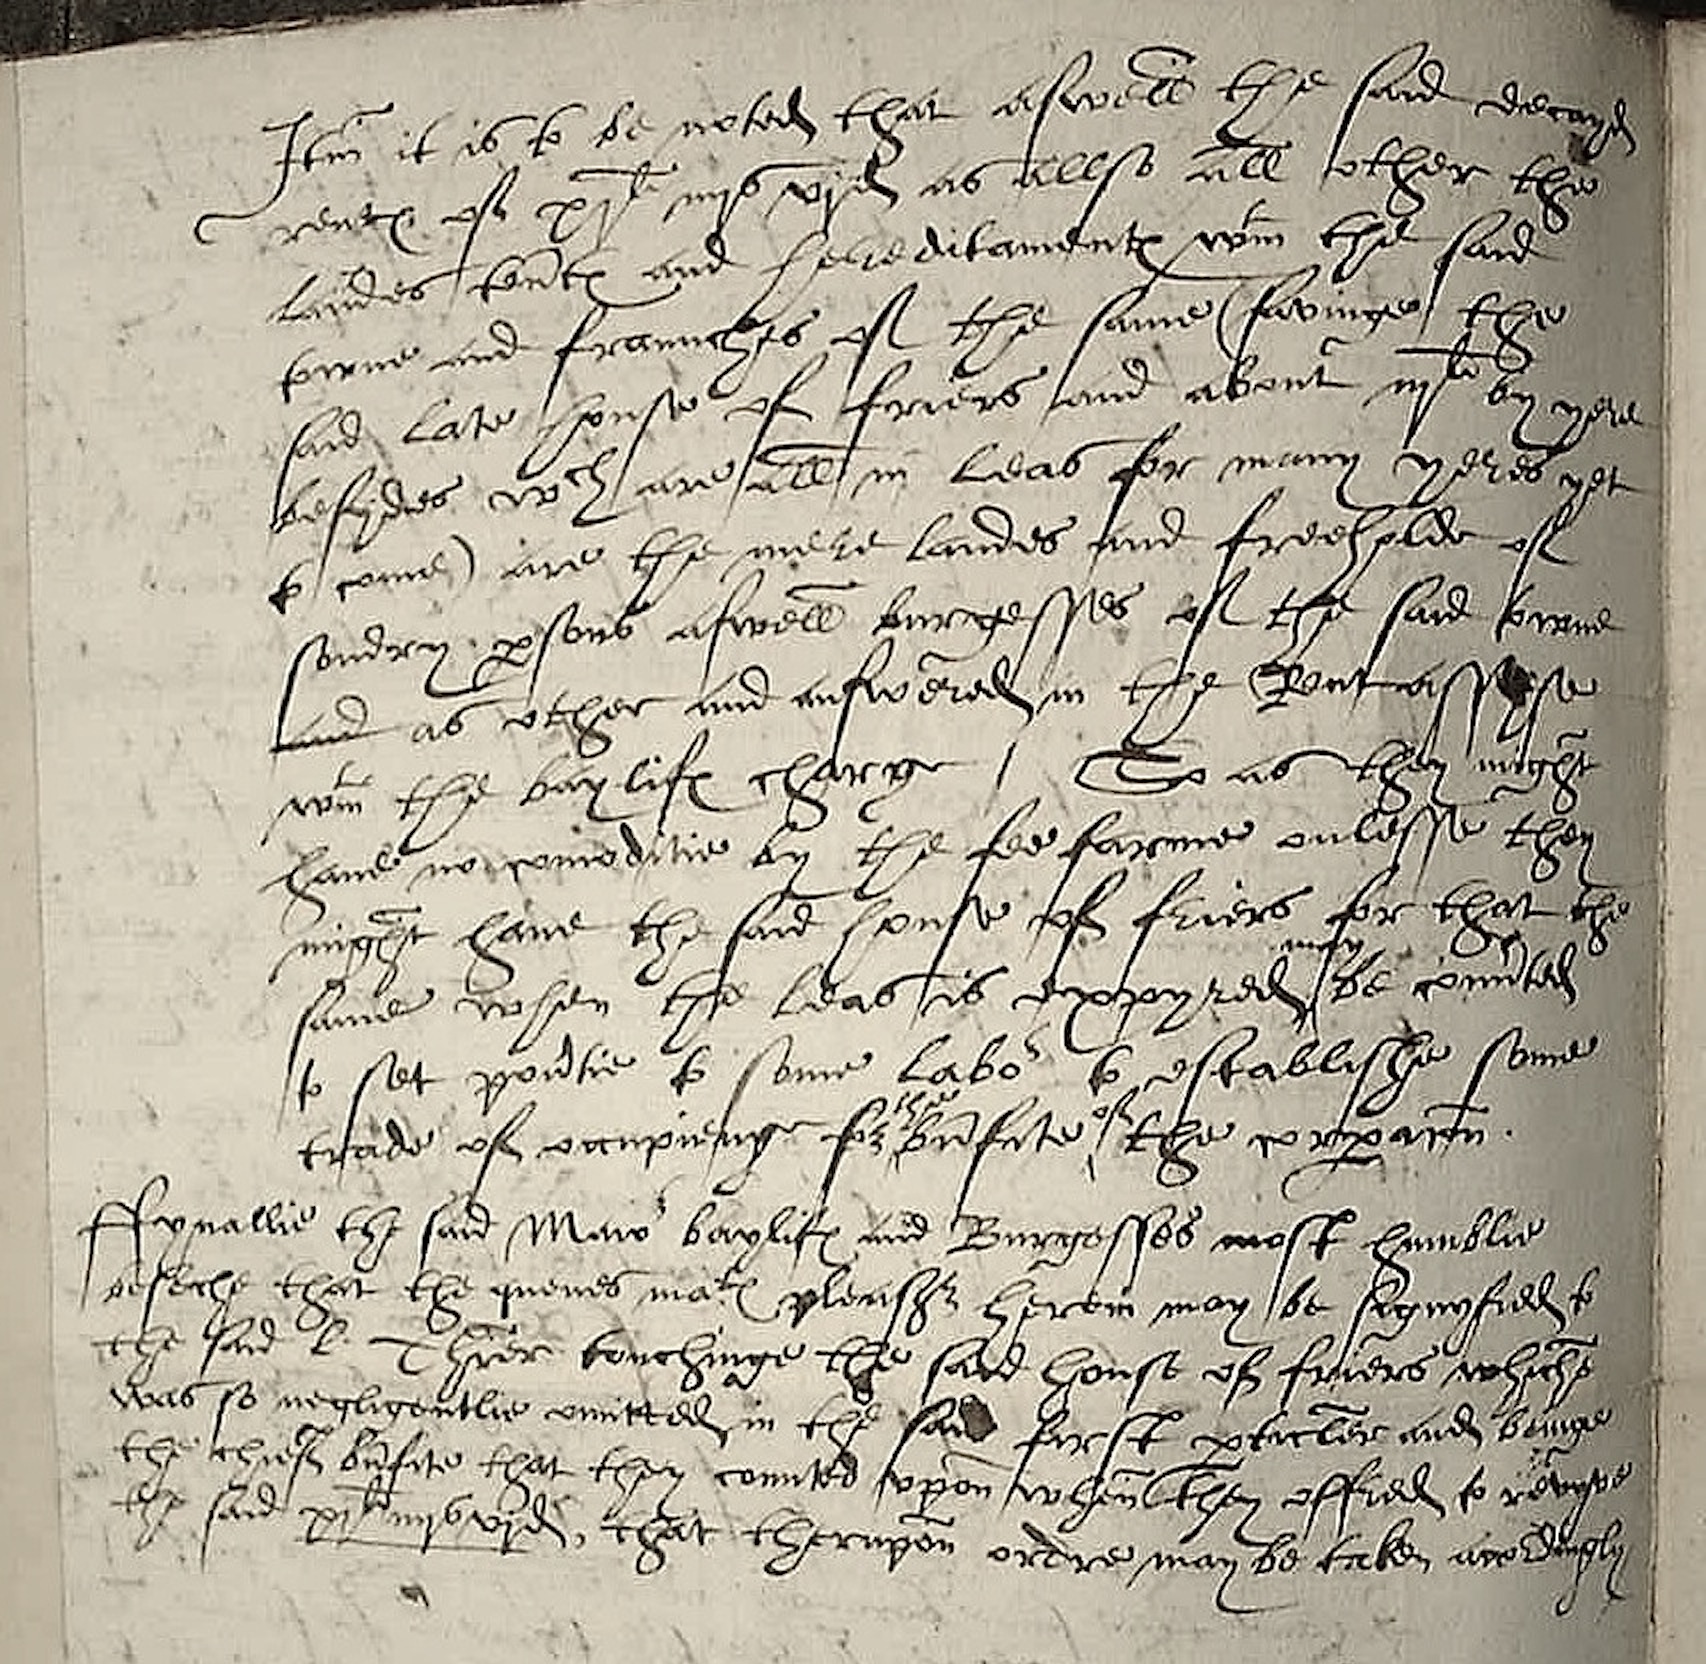 Itm it is to be noted that aswell the said decayed
rentes of xijli iijs vjd as allso all other the
landes tents and hereditamentes wthin the said
towne and fraunches of the same (savinge the
said late house of friers and about iijli by yere
besydes wch are all in leas for many yeres yet
to come) are the mere landes and freeholde of
sondry psons aswell burgesses of the said towne
and as other and answered in the Rent assyse
wthin the baylifes charge / So as they might
have no comoditie by the fee farme onlesse they
might have the said house of friers for that the
same when the leas is expyred may be conuted
to set povrtie to some labor to establishe some
trade of occupienge for the bnfite of the corporacon .
Ffynallie the said Maior baylifes and Burgesses most humblie
beseche that the quenes mates pleasure herein may be signyfied to
the said l. Threr touchinge the said house of friers whiche
was so negligentlie omitted in the said first pticler and beinge
the chief bnfite that they counted vpon when they offred to revyve
the said xijli iijs vjd, that therupon ordre may be taken accordingly